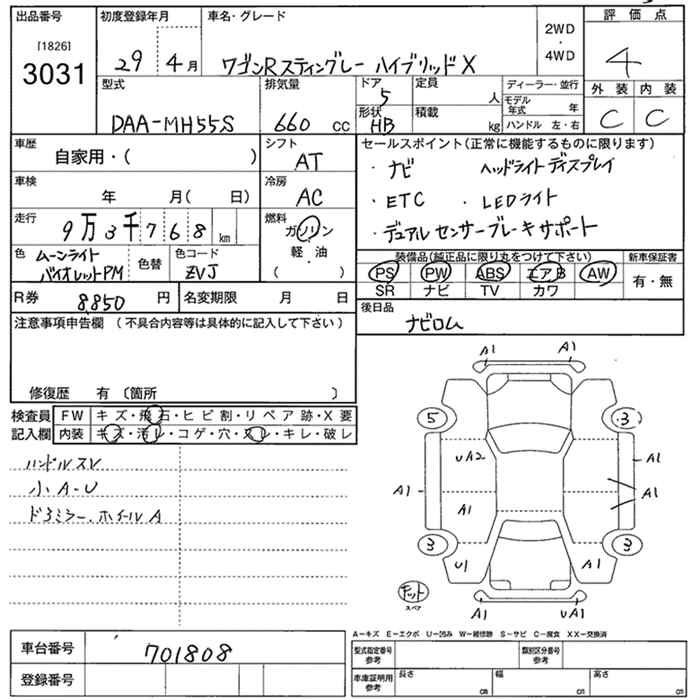 出品番号 初度登録年月 車名・グレード 評価点
[1826]
3031
29年 4月 ワゴンRスティングレー ハイブリッドX
2WD
・
4WD
4
型式 排気量 ドア 定員 ディーラー・並行 外装 内装
DAA-MH55S 660 CC 5 人
モデル年式 年
形状 積載
HB kg ハンドル 左・右
C C
車歴 シフト セールスポイント(正常に機能するものに限ります)
自家用・( ) AT
・ナビ ヘッドライトディスプレイ
車検 冷房
年 月( 日) AC
・ETC ・LEDライト
走行 燃料
9万3千768km ガソリン
・デュアルセンサーブレーキサポート
軽油
( )
色 ムーンライト 色替 色コード
バイオレットPM ZVJ
装備品(純正品に限り丸をつけて下さい) 新車保証書
PS PW ABS エアB AW 有・無
SR ナビ TV カワ
R券 8,850円 名変期限 月 日
後日品
ナビロム
注意事項申告欄 (不具合内容等は具体的に記入して下さい)
修復歴 有〔箇所 〕
検査員 FW キズ・飛石・ヒビ割・リペア跡・X要
記入欄 内装 キズ・汚レ・コゲ・穴・スレ・キレ・破レ
ハンドルスレ
小A-U
ドアミラー、ホイールA
A1 A1
5 3
UA2 A1
A1 A1 A1
3 3
U1 A1
キット
スペア
A1 UA1
A-キズ E-エクボ U-凹み W-補修跡 S-サビ C-腐食 XX-交換済
車台番号 701808
型式指定番号 類別区分番号
参考 参考
登録番号
車庫証明用 長さ 幅 高さ
参考 cm cm cm